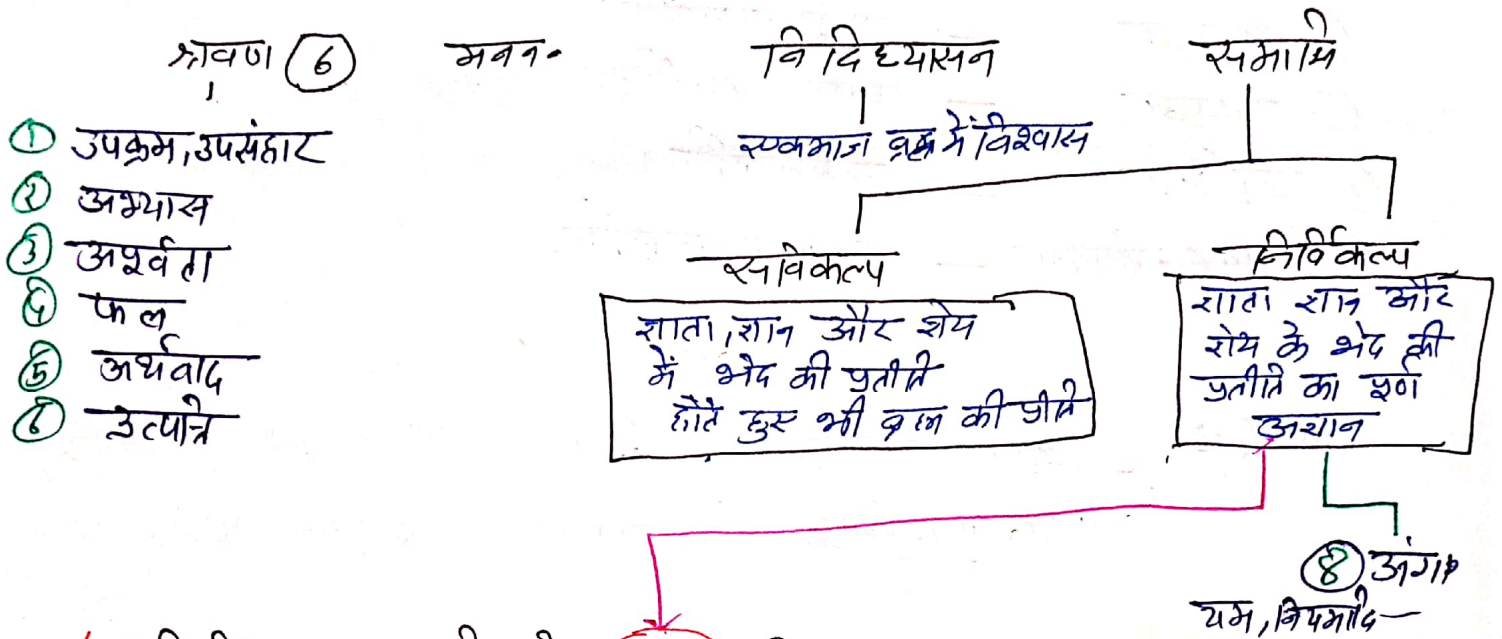 श्रावण ⑥ मनन. निदिध्यासन समाधि
① उपक्रम, उपसंहार
② अभ्यास
③ अपूर्वता
④ फल
⑤ अर्थवाद
⑥ उत्पत्ति
एकमात्र ब्रह्म में विश्वास
सविकल्प
ज्ञाता, ज्ञान और ज्ञेय
में भेद की प्रतीति
होते हुए भी ब्रह्म की प्रीति
निर्विकल्प
ज्ञाता ज्ञान और
ज्ञेय के भेद की
प्रतीति का पूर्ण
अज्ञान
⑧ अंग
यम, नियमादि—